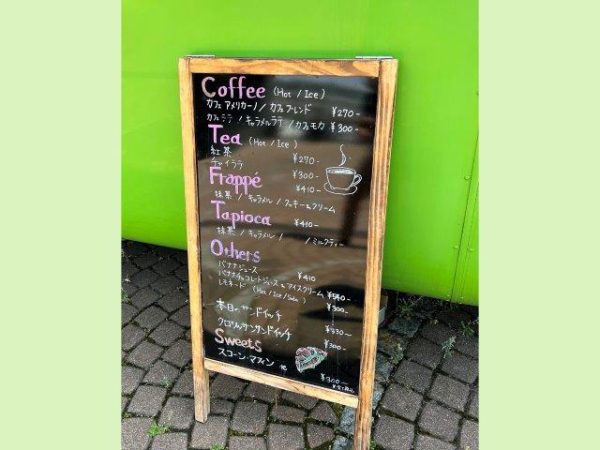 Coffee (Hot / Ice)
カフェ アメリカーノ / カフェブレンド ¥270-
カフェラテ / キャラメルラテ / カフェモカ ¥300-
Tea (Hot / Ice)
紅茶 ¥270-
チャイラテ ¥300-
Frappé ¥410-
抹茶 / キャラメル / クッキー&クリーム
Tapioca ¥410-
抹茶 / キャラメル / / ミルクティー
Others
バナナジュース ¥410
バナナチョコレートジュース & アイスクリーム ¥540-
レモネード (Hot / Ice / Soda) ¥300-
本日のサンドイッチ ¥330-
クロワッサンサンドイッチ ¥300-
Sweets
スコーン・マフィン 他
¥300-